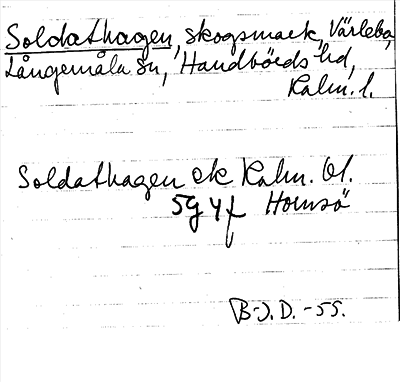 Soldathagen, skogsmark, Värlebo,
Långemåla sn, Handbörds hd,
Kalm. l.
Soldathagen ek Kalm. bl.
5g 4f Hornsö
B-J. D. -55.